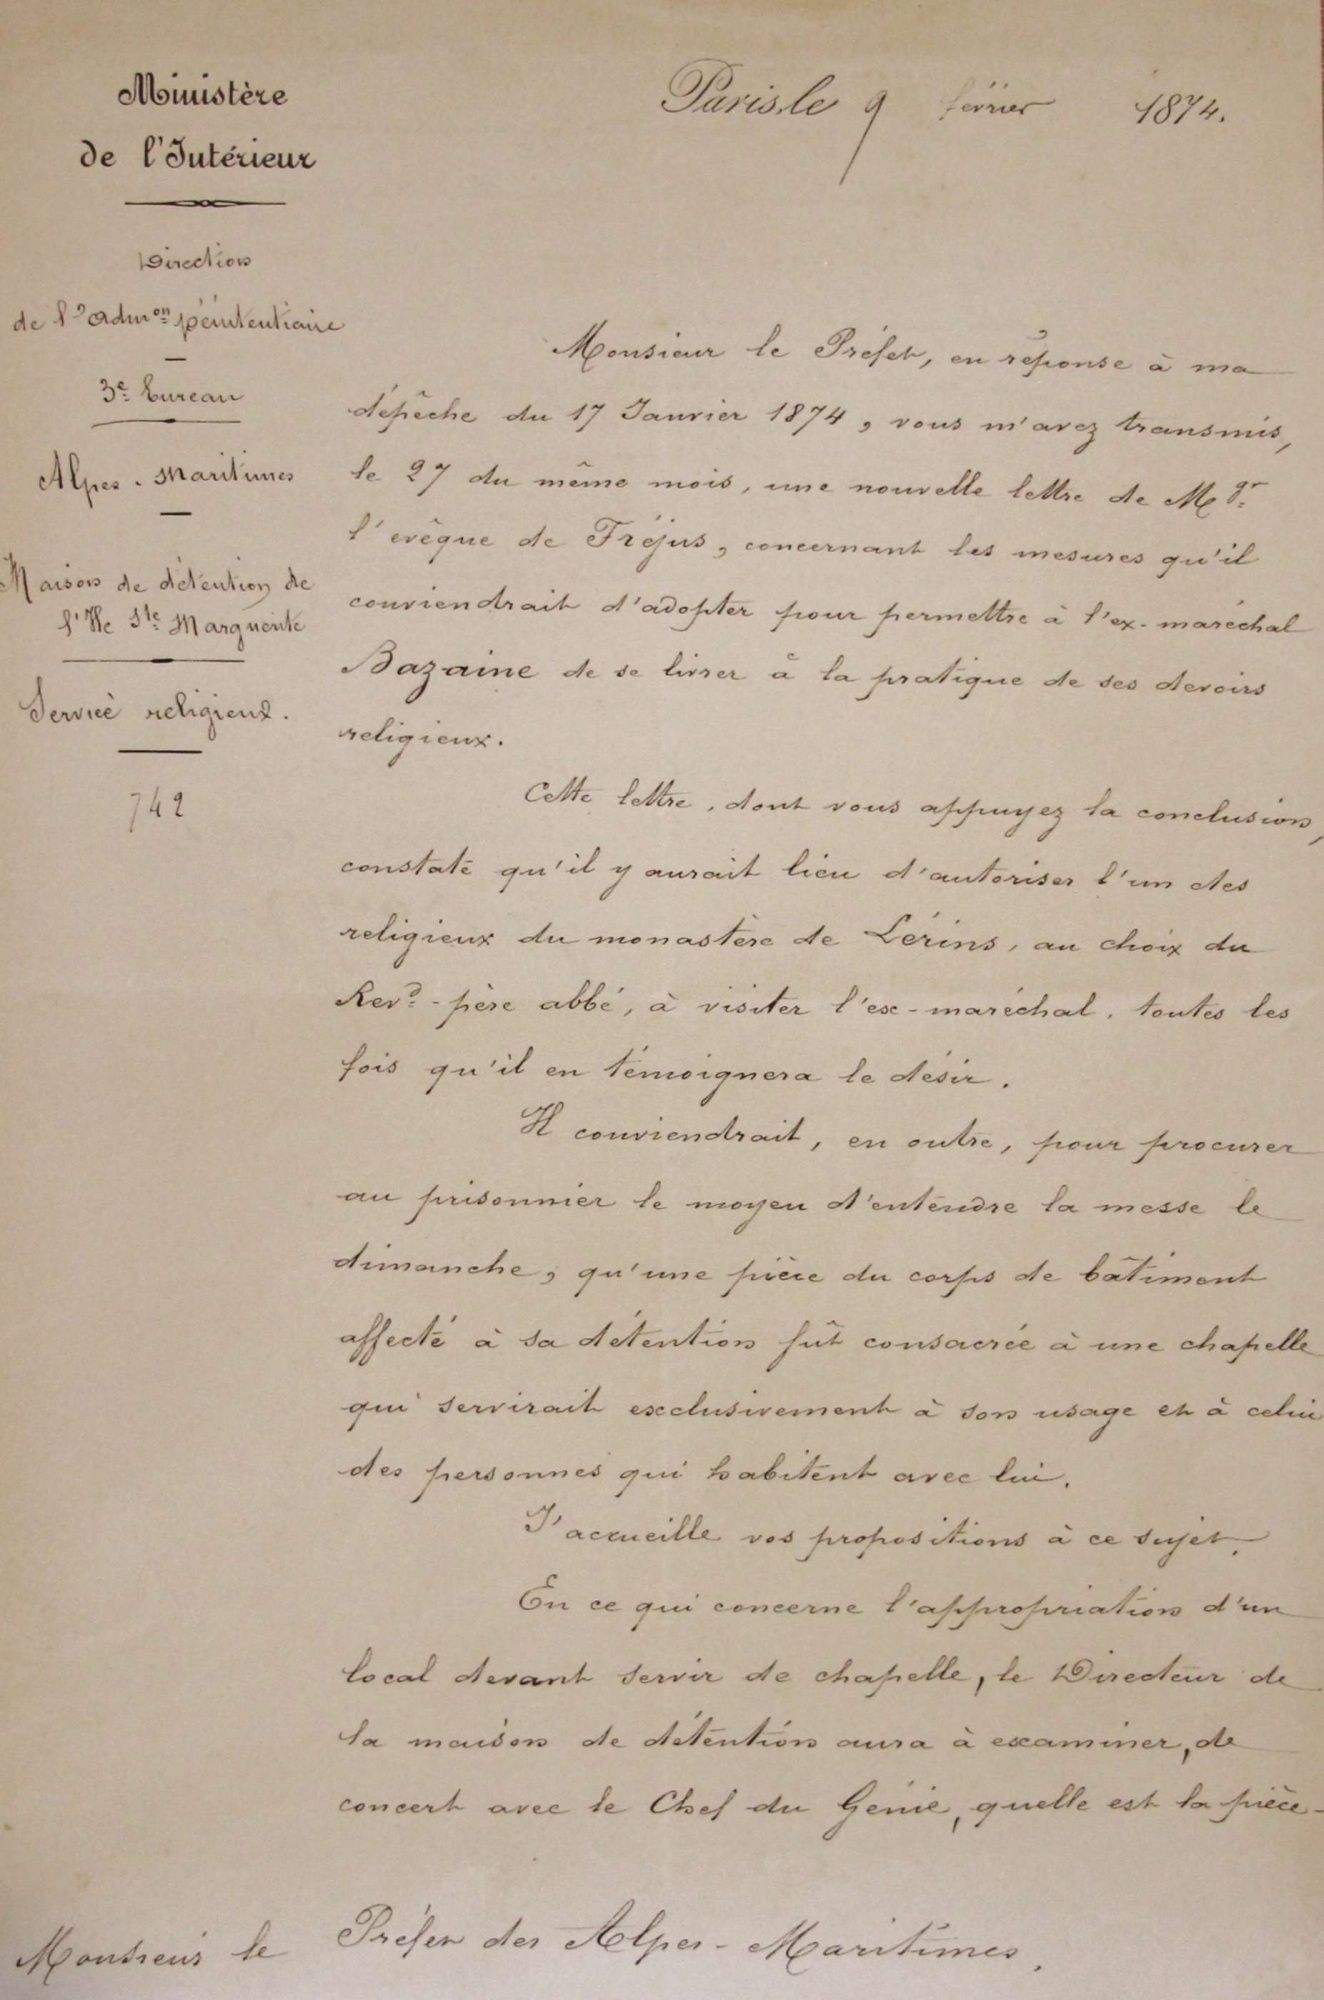 Ministère
de l'Intérieur
Direction
de l'adm.on pénitentiaire
3e Bureau
Alpes-Maritimes
Maison de détention de
l'Ile Ste Marguerite
Service religieux.
742
Paris, le 9 février 1874.
Monsieur le Préfet, en réponse à ma
dépêche du 17 Janvier 1874, vous m'avez transmis,
le 27 du même mois, une nouvelle lettre de Mgr
l'evêque de Fréjus, concernant les mesures qu'il
conviendrait d'adopter pour permettre à l'ex-maréchal
Bazaine de se livrer à la pratique de ses devoirs
religieux.
Cette lettre, dont vous appuyez la conclusion,
constate qu'il y aurait lieu d'autoriser l'un des
religieux du monastère de Lérins, au choix du
Revd-père abbé, à visiter l'ex-maréchal, toutes les
fois qu'il en témoignera le désir.
Il conviendrait, en outre, pour procurer
au prisonnier le moyen d'entendre la messe le
dimanche, qu'une pièce du corps de bâtiment
affecté à sa détention fût consacrée à une chapelle
qui servirait exclusivement à son usage et à celui
des personnes qui habitent avec lui.
J'accueille vos propositions à ce sujet.
En ce qui concerne l'appropriation d'un
local devant servir de chapelle, le Directeur de
la maison de détention aura à examiner, de
concert avec le Chef du Génie, quelle est la pièce
Monsieur le Préfet des Alpes-Maritimes.